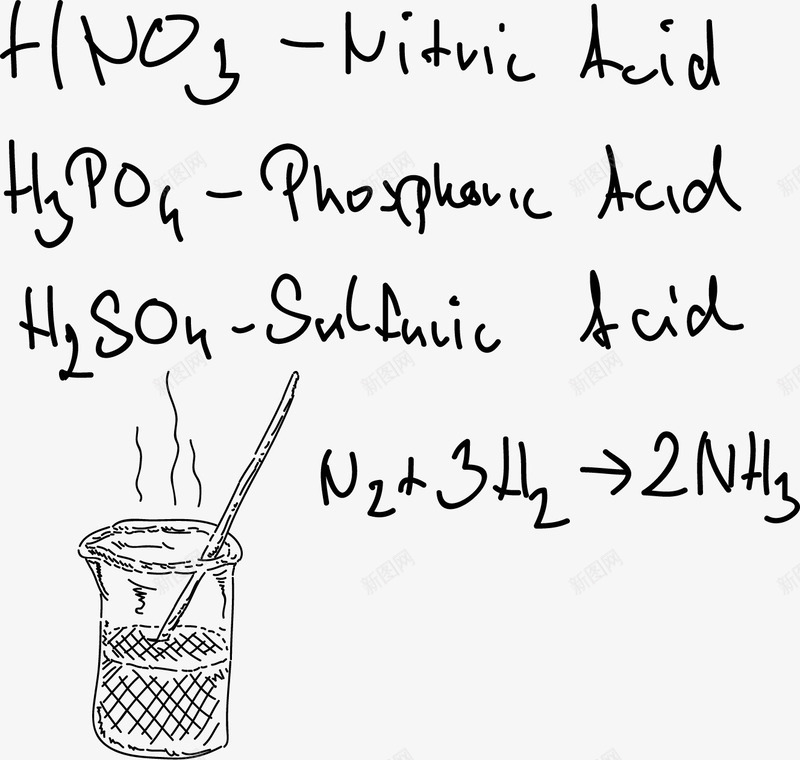 HNO3 – Nitric Acid
H3PO4 – Phosphoric Acid
H2SO4 – Sulfuric Acid
N2+3H2 →2NH3